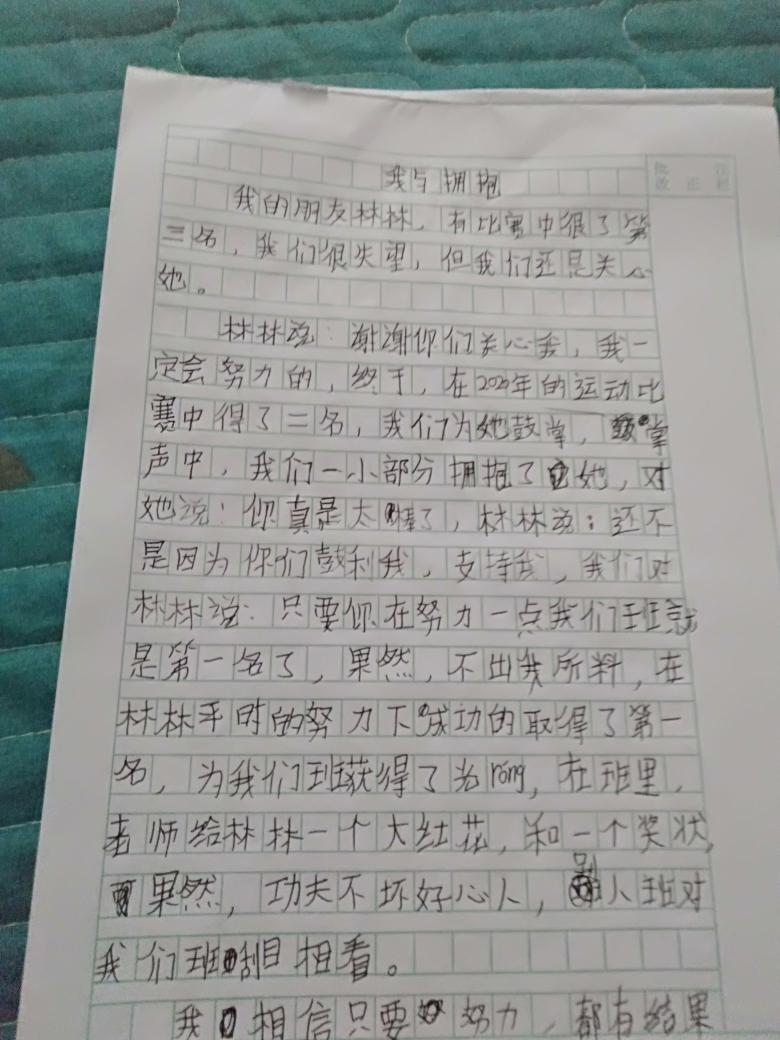 我与拥抱
我的朋友林林，有比赛中很了第
三名，我们很失望，但我们还是关心
她。
林林说：谢谢你们关心我，我一
定会努力的，终于，在2020年的运动比
赛中得了二名，我们为她鼓掌，掌
声中，我们一小部分拥抱了她，对
她说：你真是太棒了，林林说：还不
是因为你们鼓利我，支持我，我们对
林林说：只要你在努力一点我们班就
是第一名了，果然，不出我所料，在
林林平时的努力下成功的取得了第一
名，为我们班获得了光rong，在班里，
老师给林林一个大红花，和一个奖状，
果然，功夫不坏好心人，别人班对
我们班刮目相看。
我相信只要努力，都有结果